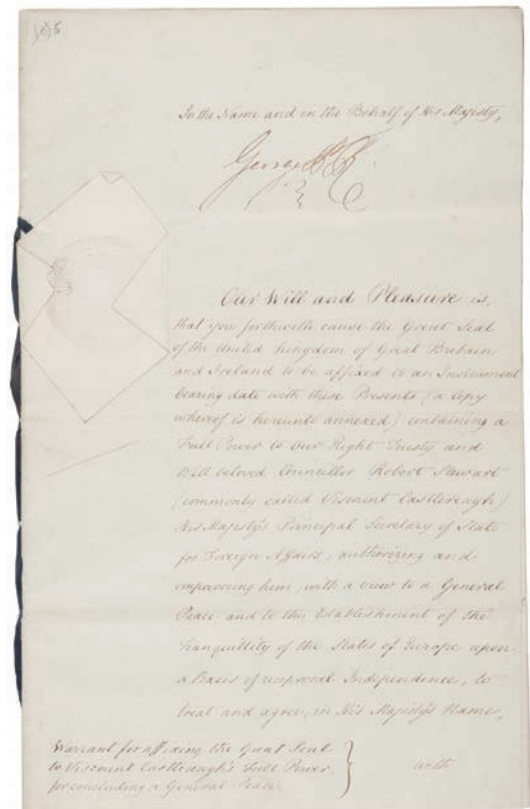 In the Name and on the Behalf of His Majesty,
George P R
Our Will and Pleasure is,
that you forthwith cause the Great Seal
of the United Kingdom of Great Britain
and Ireland to be affixed to an Instrument
bearing date with these Presents (a Copy
whereof is hereunto annexed) containing a
Full Power to our Right Trusty and
Well beloved Councillor Robert Stewart
(commonly called Viscount Castlereagh)
His Majesty's Principal Secretary of State
for Foreign Affairs, authorizing and
empowering him, with a view to a General
Peace and to the Establishment of the
Tranquillity of the States of Europe upon
a Basis of reciprocal Independence, to
treat and agree, in His Majesty's Name,
with
Warrant for affixing the Great Seal
to Viscount Castlereagh's Full Power
for concluding a General Peace.